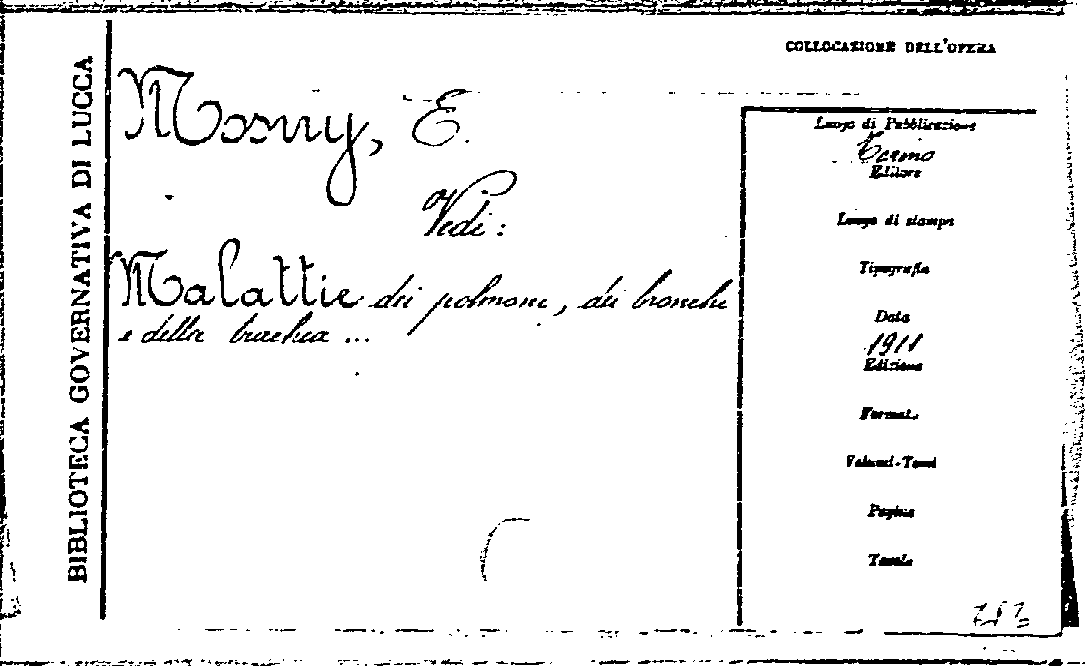 COLLOCAZIONE DELL'OPERA
BIBLIOTECA GOVERNATIVA DI LUCCA
Mosny, E.
Vedi:
Malattie dei polmoni, dei bronchi
e della trachea ...
Luogo di Pubblicazione
Torino
Editore
Luogo di stampa
Tipografia
Data
1911
Edizione
Formato
Volumi-Tomi
Pagine
Tavole